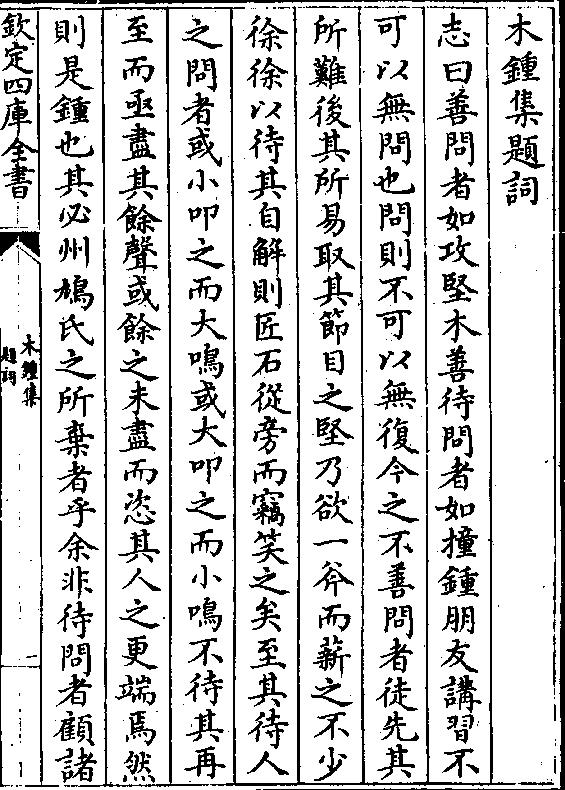 木鍾集題詞
志曰善問者如攻堅木善待問者如撞鍾朋友講習不
可以無問也問則不可以無復今之不善問者徒先其
所難後其所易取其節目之堅乃欲一斧而薪之不少
徐徐以待其自解則匠石從旁而竊笑之矣至其待人
之問者或小叩之而大鳴或大叩之而小鳴不待其再
至而亟盡其餘聲或餘之未盡而恣其人之更端焉然
則是鍾也其必州鳩氏之所棄者乎余非待問者顧諸
欽定四庫全書
木鍾集
題詞
一